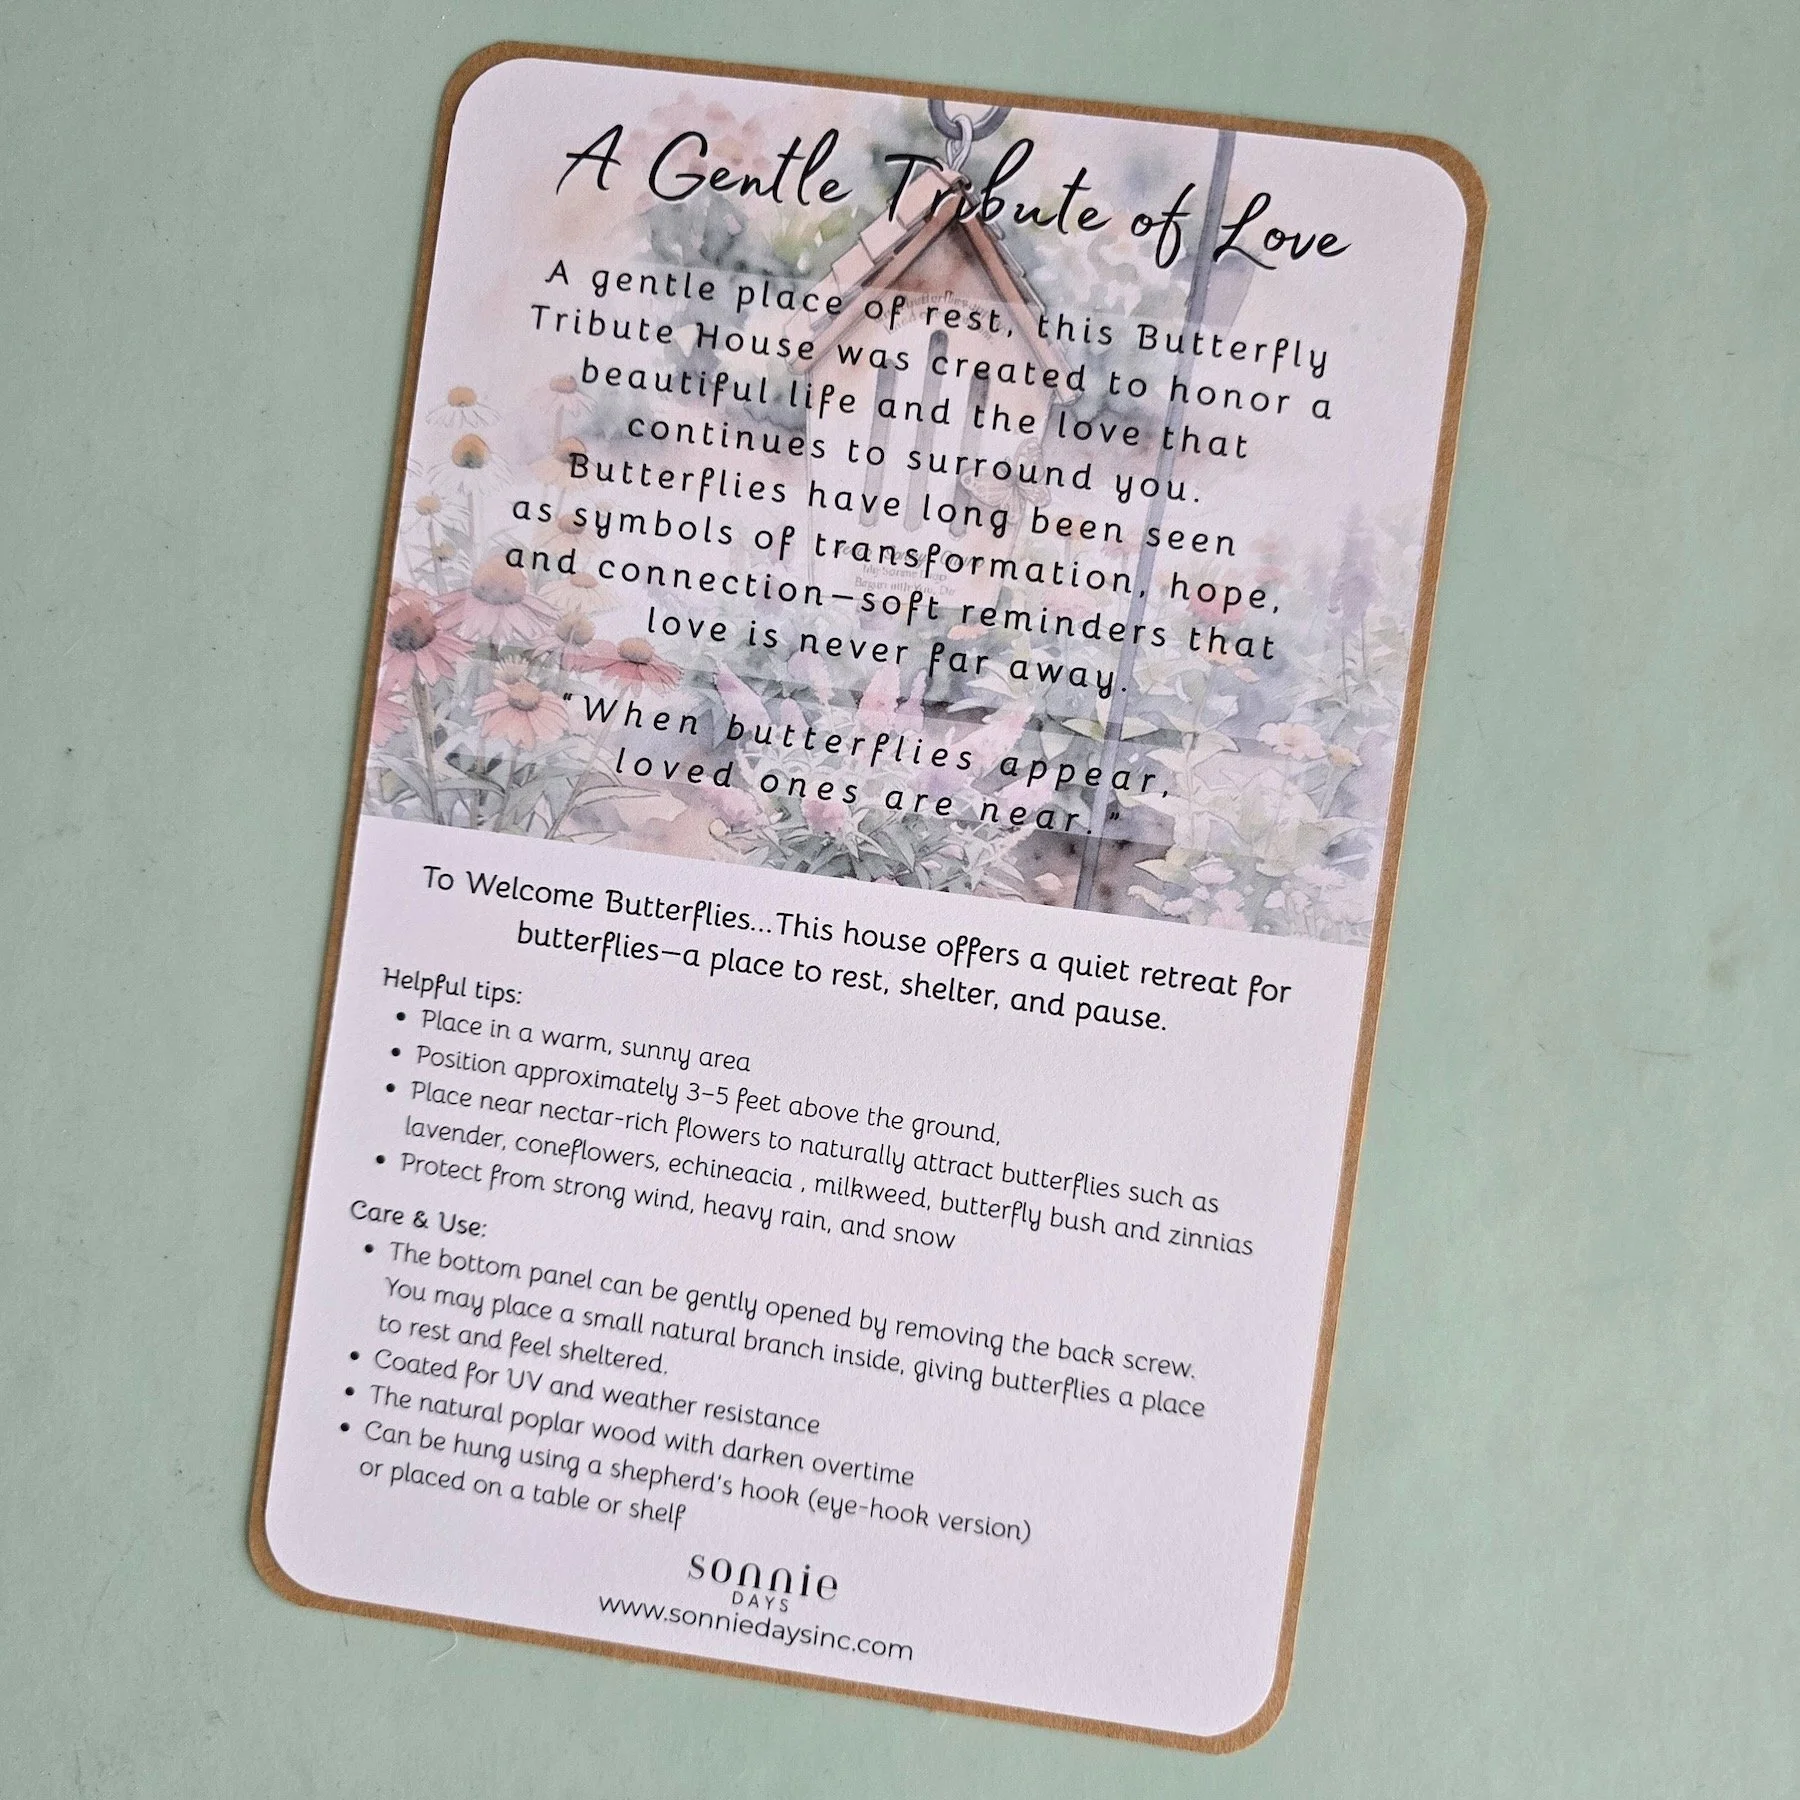 A Gentle Tribute of Love
A gentle place of rest, this Butterfly
Tribute House was created to honor a
beautiful life and the love that
continues to surround you.
Butterflies have long been seen
as symbols of transformation, hope,
and connection—soft reminders that
love is never far away.
“When butterflies appear,
loved ones are near.”
To Welcome Butterflies...This house offers a quiet retreat for
butterflies—a place to rest, shelter, and pause.
Helpful tips:
• Place in a warm, sunny area
• Position approximately 3–5 feet above the ground,
• Place near nectar-rich flowers to naturally attract butterflies such as
lavender, coneflowers, echineacia , milkweed, butterfly bush and zinnias
• Protect from strong wind, heavy rain, and snow
Care & Use:
• The bottom panel can be gently opened by removing the back screw.
You may place a small natural branch inside, giving butterflies a place
to rest and feel sheltered.
• Coated for UV and weather resistance
• The natural poplar wood with darken overtime
• Can be hung using a shepherd's hook (eye-hook version)
or placed on a table or shelf
sonnie
DAYS
www.sonniedaysinc.com